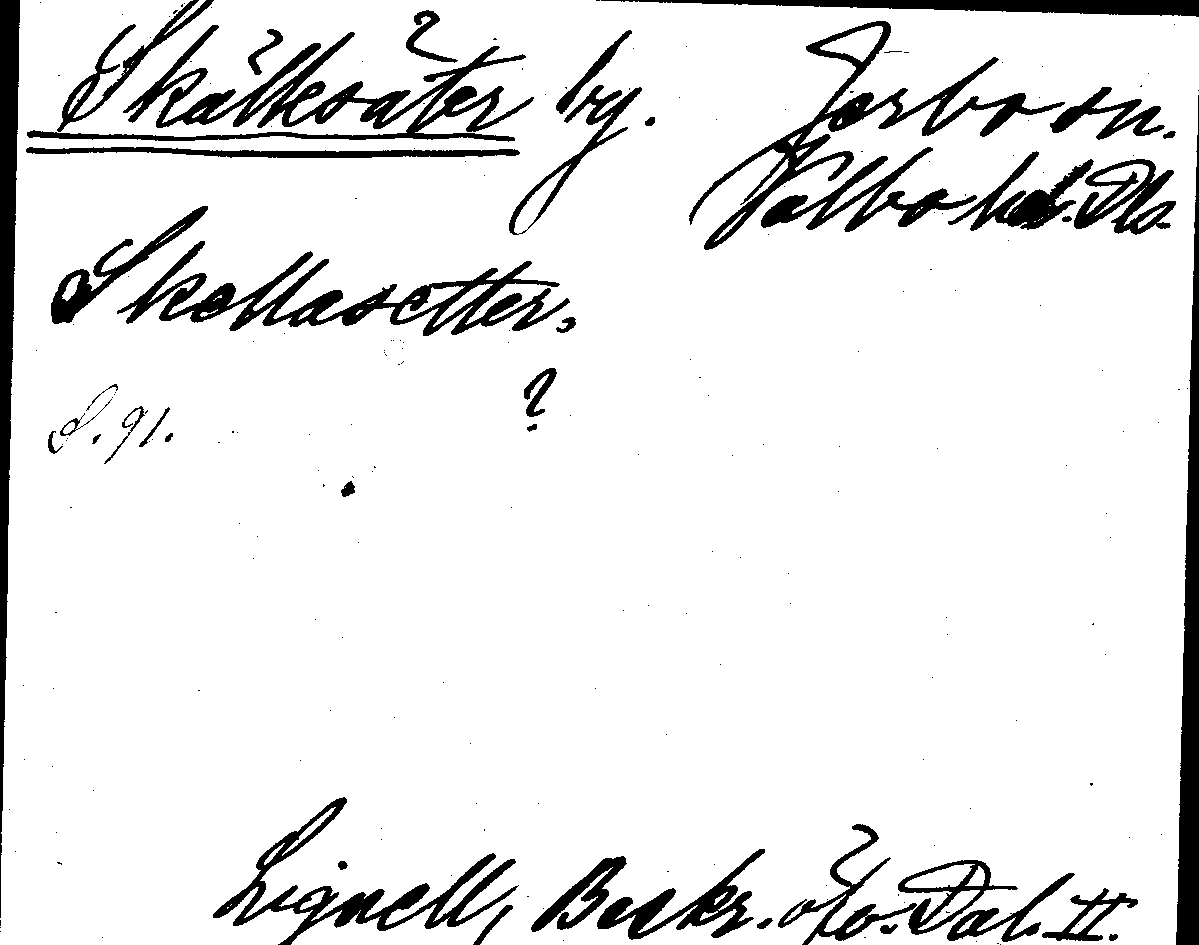 Skälksäter by. Järbo sn.
Valbo hd. Dls.
Skællasetter,
?
S. 91.
Lignell, Beskr. öfv. Dal. II.